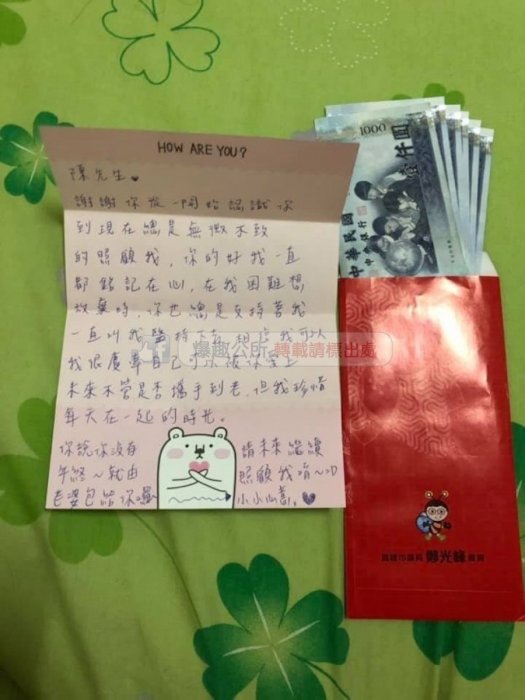 HOW ARE YOU?
陳先生
謝謝你從一開始認識你
到現在總是無微不致
的照顧我，你的好我一直
都銘記在心，在我困難想
放棄時，你也總是支持著我
一直叫我堅持下去，相信我可以
我很慶幸自己可以被你愛上
未來不管是否攜手到老，但我珍惜
每天在一起的時光。
你說你沒有
年終～就由
老婆包給你囉
請未來繼續
照顧我唷～:D
小小心意。
1000
壹仟圓
中華民國
中央銀行
爆趣公所 轉載請標出處
高雄市議員 鄭光峰 敬贈